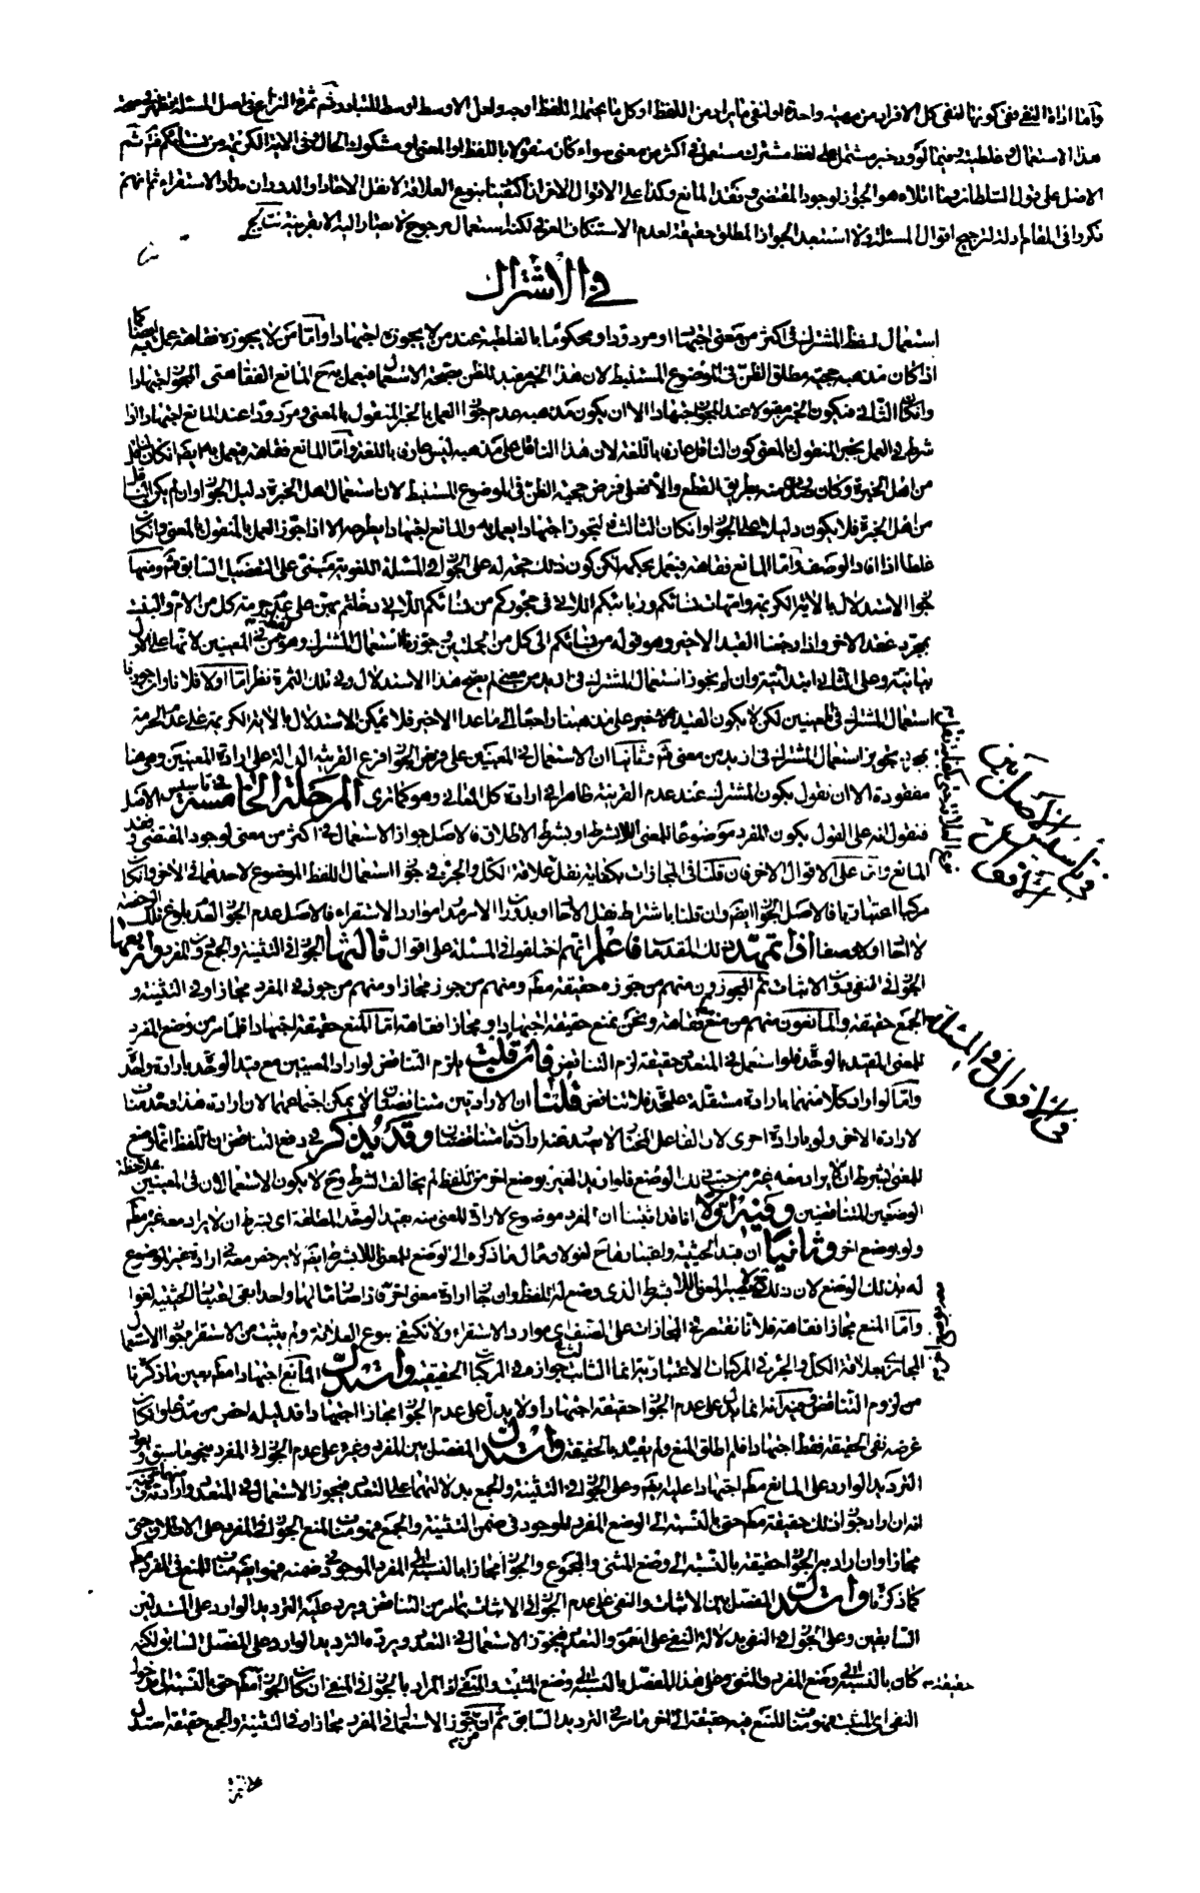 هذا الاستعمال وغلطيته وفيما لو ورد خبر مشتمل على لفظ مشترك مستعمل في أكثر من معنى سواء كان منقولا باللفظ او المعنى او مشكوك الحال وفي الاية الكريمة من نسائكم فتم ثم
الاصل على قول السلطان وما اتلاه هو الجواز لوجود المقتضي وفقد المانع وكذا على الاقوال الاخر ان اكتفينا بنوع العلاقة لا نقل الاحاد والا دوران مدار الاستقراء ثم انهم
ذكروا في المقام ادلة لترجيح اقوال المسئلة ولا استبعد الجواز المطلق حقيقة لعدم الاستنكار العرفي لكنه استعمال مرجوح لا يصار اليه الا بقرينة
في الاشتراك
استعمال لفظ المشترك في اكثر من معنى اجتهادا او مردودا ومحكوما بالغلطية عند من لا يجوزه اجتهادا واما من لا يجوزه فقاهة عمل به
اذا كان مذهبه حجية مطلق الظن في الموضوع المستنبط لان هذا الخبر مفيد للظن بصحة الاستعمال فيعمل به ح المانع الفقاهتي المجوز اجتهادا
وان كان الثاني فيكون الخبر مقبولا عند المجوز اجتهادا الا ان يكون مذهبه عدم جواز العمل بالخبر المنقول بالمعنى ومردودا عند المانع اجتهادا اذا
شرط في العمل بخبر المنقول بالمعنى كون الناقل عارفا باللغة لان هذا الناقل على مذهبه ليس عارفا باللغة واما المانع فقاهة فيعمل به ايضا ان كان الناقل
من اهل الخبرة وكان صدوره منه بطريق القطع والا فعلى فرض حجية الظن في الموضوع المستنبط لان استعمال اهل الخبرة دليل الجواز وان لم يكن الناقل
من اهل الخبرة فلا يكون دليلا على الجواز وان كان الثالث فالمجوز اجتهادا يعمل به والمانع اجتهادا يطرحه الا اذا جوز العمل بالمنقول بالمعنى وان كان
غلطا اذا افاد الوصف واما المانع فقاهة فيعمل بحكمه لكن كون ذلك حجة له على الجواز في المسئلة اللغوية مبتنى على التفصيل السابق فتم ومنها
جواز الاستدلال بالاية الكريمة وامهات نسائكم وربائبكم اللاتي في حجوركم من نسائكم اللاتي دخلتم بهن على حرمة كل من الام والبنت
بمجرد عقد الاخر واذا رجعنا القيد الاخير وهو قوله من نسائكم الى كل من الجملتين وجوزنا استعمال المشترك وهو من في المعنيين لانها على الاول
بيانية وعلى الثاني ابتدائية وان لم يجوز استعمال المشترك في ازيد من معنى لم يصح هذا الاستدلال وفي تلك الثمرة نظر اما اولا فلانا وان جوزنا
استعمال المشترك في المعنيين لكن لا يكون القيد الاخير على مذهبنا راجعا الى ما عدا الاخير فلا يمكن الاستدلال بالاية الكريمة على عدم الحرمة
بمجرد تجويز استعمال المشترك في ازيد من معنى فتم وثانيا ان الاستعمال في المعنيين على فرض الجواز فرع القرينة الدالة على ارادة المعنيين وهي هنا
مفقودة الا ان نقول بكون المشترك عند عدم القرينة ظاهرا في ارادة كل المعاني وهو كما ترى المرحلة الخامسة في تاسيس الاصل
فنقول انه على القول بكون المفرد موضوعا للمعنى اللابشرط او بشرط الاطلاق فالاصل جواز الاستعمال في اكثر من معنى لوجود المقتضي وفقد
المانع واما على الاقوال الاخر فان قلنا في المجازات بكفاية نقل علاقة الكل والجزء في جواز استعمال اللفظ الموضوع لاحدهما في الاخر وان كان
مركبا اعتباريا فالاصل الجواز ايضا وان قلنا باشتراط نقل الاحاد او بدوران الامر مدار موارد الاستقراء فالاصل عدم الجواز لعدم بلوغ تلك الرخصة
لا الحا اولا وصفا اذا تمهد تلك المقدمة فاعلم انهم اختلفوا في المسئلة على اقوال ثالثها الجواز في التثنية والجمع دون المفرد ورابعها
الجواز في النفي دون الاثبات ثم المجوزون منهم من جوزه حقيقة مطلقا ومنهم من جوز مجازا ومنهم من جوز في المفرد مجازا وفي التثنية و
الجمع حقيقة والمانعون منهم من منع فقاهة ونحن نمنع حقيقة اجتهادا ومجازا فقاهة اما المنع حقيقة اجتهادا فلما مر من وضع المفرد
للمعنى المقيد بالوحدة فلو استعمل في المتعدد حقيقة لزم التناقض فان قلت يلزم التناقض لو اراد المعنيين مع قيد الوحدة بارادة واحدة
واما لو اراد كلا منهما بارادة مستقلة على حدة فلا تناقض قلنا ان الارادتين متناقضتان لا يمكن اجتماعهما لان ارادة هذا وحده منافية
لارادة الاخر ولو بارادة اخرى وقد يذكر في دفع التناقض ان اللفظ انما وضع
للمعنى بشرط ان لا يراد معه غيره من حيث ذلك الوضع فلو اريد الغير بوضع اخر من اللفظ لم يخالف الشرط وح لا يكون الاستعمال في المعنيين بملاحظة
الوضعين للمتناقضين وفيه اولا انا قد اثبتنا ان المفرد موضوع لارادة المعنى منه بقيد الوحدة المطلقة اي بشرط ان لا يراد معه غيره مطلقا
ولو بوضع اخر وثانيا ان قيد الحيثية واعتبارها ح لغو لا ومال ما ذكره الى الوضع للمعنى اللابشرط ايضا لا يرخص معه في ارادة غير الموضوع
له بذلك الوضع لان ذلك يصير المعنى اللابشرط الذي وضع له اللفظ وان جاز ارادة معنى اخر
واما المنع مجازا فقاهة فلانا نقتصر في المجازات على الصنف في موارد الاستقراء ولا نكتفي بنوع العلاقة ولم يثبت من الاستقراء جواز الاستعمال
المجازي بعلاقة الكل والجزء في المركبات الاعتبارية انما الثابت جوازه في المركبات الحقيقية واستدل المانع اجتهادا مطلقا بعين ما ذكرنا
من لزوم التناقض وفيه انه انما يدل على عدم الجواز حقيقة اجتهادا ولا يدل على عدم الجواز مجازا اجتهادا فدليله اخص من مدعاه وان كان
غرضه نفي الحقيقة فقط اجتهادا فلم اطلق المنع ولم يقيد بالحقيقة واستدل المفصل بين المفرد وغيره على عدم الجواز في المفرد بنحو ما سبق ويعود
الترديد الوارد على المانع مطلقا اجتهادا عليه ايضا وعلى الجواز في التثنية والجمع بدلالتهما على التعدد فيجوز الاستعمال في المتعدد وارادته
انه ان اراد جواز ذلك حقيقة مطلقا حتى بالنسبة الى الوضع المفرد الموجود في ضمن التثنية والجمع فهو مناف لمنع الجواز في المفرد على الاطلاق حتى
مجازا وان اراد به الجواز حقيقة بالنسبة الى وضع المثنى والمجموع والجواز مجازا بالنسبة الى المفرد الموجود في ضمنه فهو ايضا مناف للمنع في المفرد مطلقا
كما ذكرنا واستدل المفصل بين الاثبات والنفي على عدم الجواز في الاثبات بما مر من التناقض ويرد عليه الترديد الوارد على المستدلين
السابقين وعلى الجواز في النفي بدلالة النفي على العموم والتعدد فيجوز الاستعمال في التعدد ويرده الترديد الوارد على المفصل السابق لكنه
كان بالنسبة الى وضع المفرد والمثنى وعلى هذا المفصل بالنسبة الى وضع المثبت والمنفي اذ المراد بالجواز في المنفي ان كان الجواز مطلقا حتى بالنسبة الى مدخول
النفي اي المثبت فهو مناف للمنع فيه حقيقة الى اخر ما مر في الترديد السابق ثم ان مجوز الاستعمال في المفرد مجازا وفي التثنية والجمع حقيقة استدل
في تاسيس الاصل بين الاقوال
في الاقوال في المسئلة
حقيقة